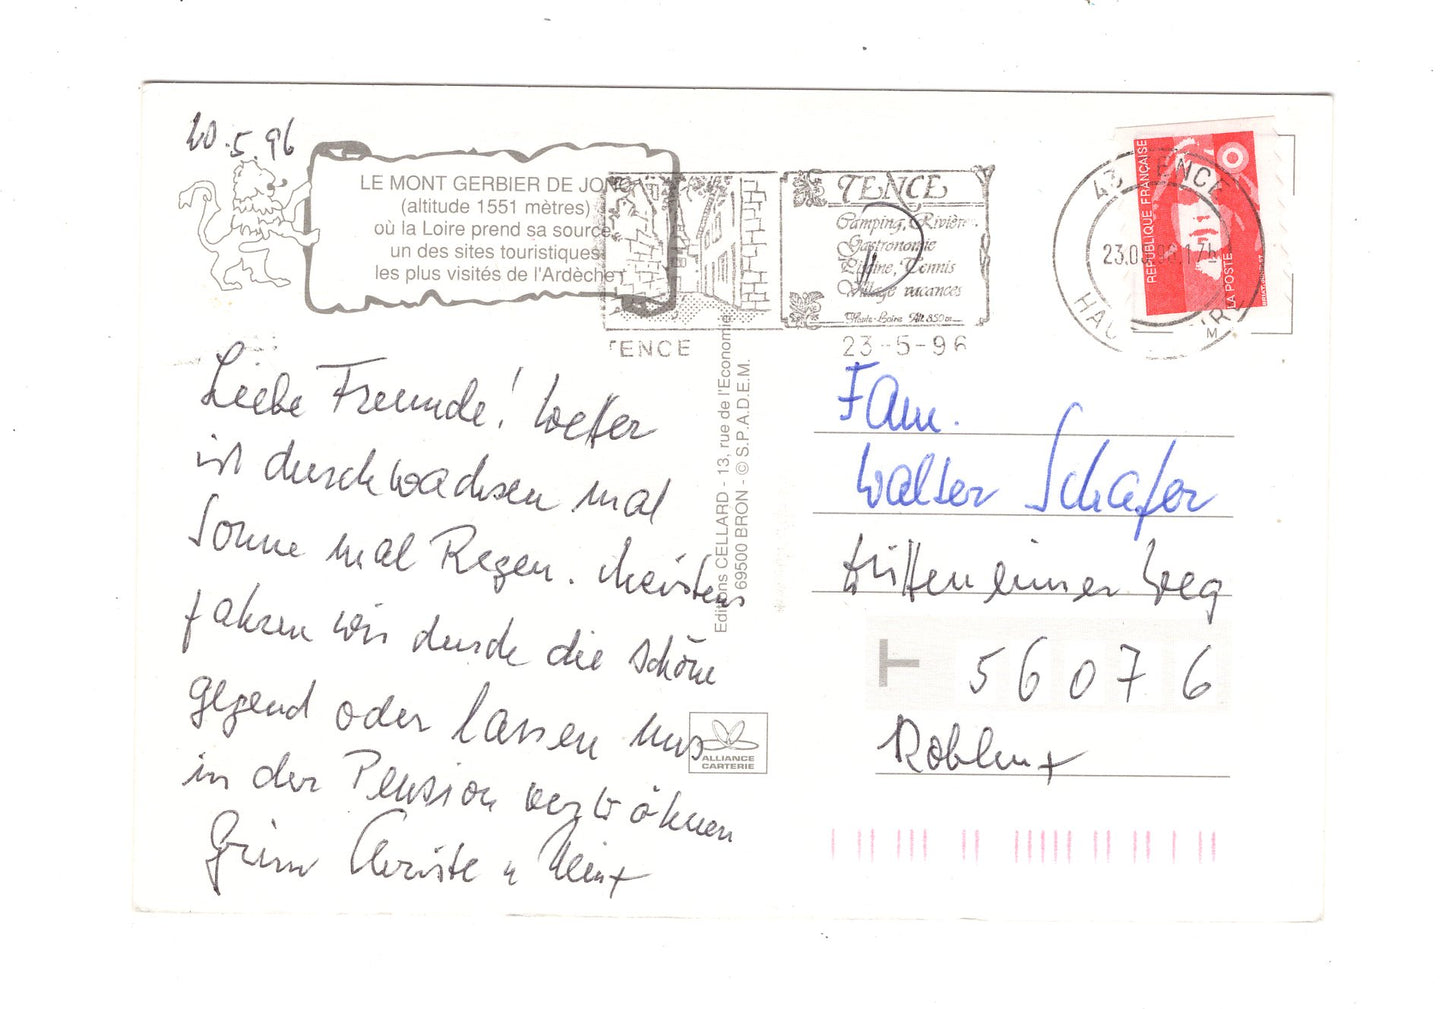 20.5.96
LE MONT GERBIER DE JONC
(altitude 1551 mètres)
où la Loire prend sa source
un des sites touristiques
les plus visités de l'Ardèche
TENCE
Camping, Rivière
Gastronomie
Piscine, Tennis
Village vacances
Haute-Loire Alt. 850 m
TENCE
23-5-96
43 TENCE
23.05
HAUTE LOIRE
M
REPUBLIQUE FRANÇAISE
LA POSTE
Liebe Freunde! Wetter
ist durchwachsen mal
Sonne mal Regen. Meistens
fahren wir durch die schöne
gegend oder lassen uns
in der Pension verwöhnen
Gruss Christe u Heinz
Editions CELLARD - 13, rue de l'Economie
69500 BRON - © S.P.A.D.E.M.
ALLIANCE
CARTERIE
Fam.
Walter Schäfer
Weg
56076
Koblenz